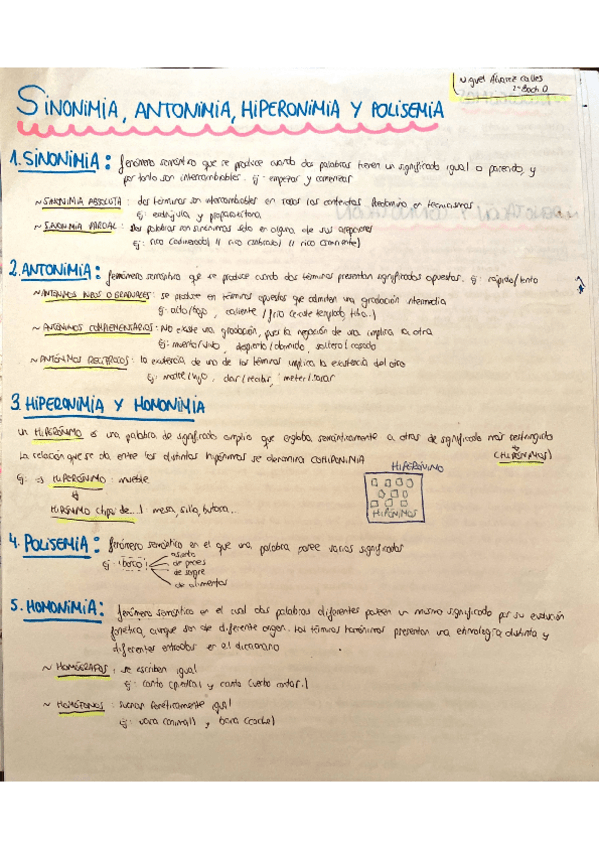 Miguel Álvarez Calles
2º Bach D
SINONIMIA, ANTONIMIA, HIPERONIMIA Y POLISEMIA
1. SINONIMIA: fenómeno semántico que se produce cuando dos palabras tienen un significado igual o parecido, y
por tanto son intercambiables. Ej: empezar y comenzar
~ SINONIMIA ABSOLUTA: dos términos son intercambiables en todos los contextos. Predomina en tecnicismos
Ej: endríjula y
~ SINONIMIA PARCIAL: dos palabras son sinónimas sólo en alguna de sus acepciones
Ej: rico (adinerado) // rico // rico
2. ANTONIMIA: fenómeno semántico que se produce cuando dos términos presentan significados opuestos. Ej: rápido/lento
~ ANTÓNIMOS O GRADUALES: se produce en términos opuestos que admiten una gradación intermedia
Ej: alto/bajo, caliente/frío (existe templado, tibio..)
~ ANTÓNIMOS COMPLEMENTARIOS: NO existe una gradación, pues la negación de una implica la otra
Ej: muerto/vivo, despierto/dormido, soltero/casado
~ ANTÓNIMOS RECÍPROCOS: la existencia de uno de los términos implica la existencia del otro
Ej: madre/hijo, dar/recibir, meter/sacar
3. HIPERONIMIA Y HOMONIMIA
un HIPERÓNIMO es una palabra de significado amplio que engloba semánticamente a otras de significado más restringido
(HIPÓNIMOS)
La relación que se da entre los distintos hipónimos se denomina COHIPONIMIA
HIPERÓNIMO
Ej: => HIPERÓNIMO: mueble
HIPÓNIMO (tipo de...) mesa, silla, butaca...
HIPÓNIMOS
4. POLISEMIA: fenómeno semántico en el que una palabra posee varios significados
asiento
Ej: banco de peces
de sangre
de alimentos
5. HOMONIMIA: fenómeno semántico en el cual dos palabras diferentes poseen un mismo significado por su evolución
fonética, aunque son de diferente origen. Los términos homónimos presentan una etimología distinta y
diferentes entradas en el diccionario
~ HOMÓGRAFOS: se escriben igual
Ej: canto (piedra) y canto (verbo cantar)
~ HOMÓFONOS: suenan fonéticamente igual
Ej: vaca (animal) y baca (coche)